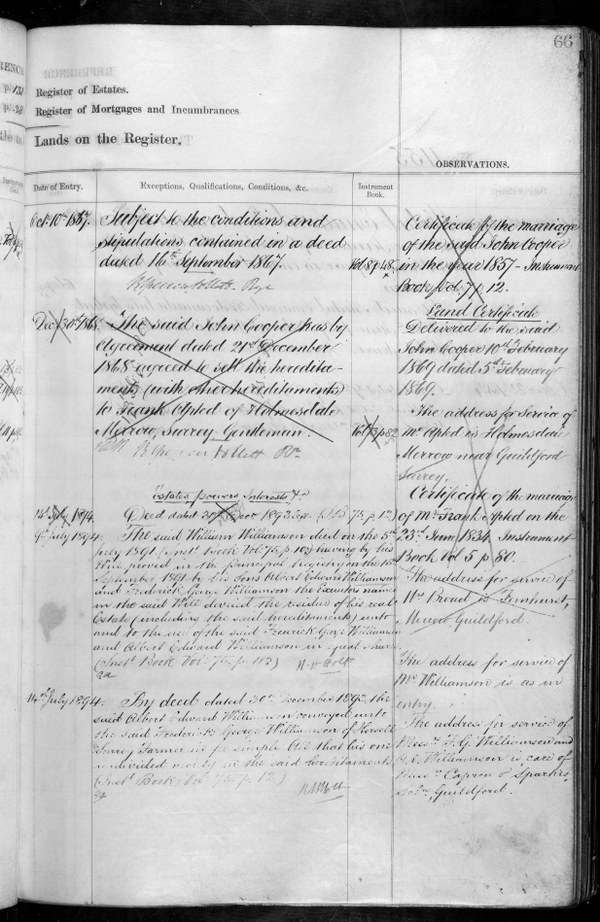 66
Register of Estates.
Register of Mortgages and Incumbrances.
Lands on the Register.
OBSERVATIONS.
Date of Entry.
Exceptions, Qualifications, Conditions, &c.
Instrument Book.
Oct. 10th 1867.
Subject to the conditions and
stipulations contained in a deed
dated 16th September 1867.
Vol 8 p 48.
Dec 30th 1868.
The said John Cooper has by
Agreement dated 21st December
1868 agreed to sell the heredita-
ments (with other hereditaments)
to Frank Apted of Holmesdale
Merrow, Surrey Gentleman.
Estates powers Interests &c
14th July 1894.
Deed dated 30th 1893
75 p 12)
9th July 1894.
The said William Williamson died on the 5th
July 1891. (Inst. Book Vol. 75, p. 102) having by his
Will proved in the principal registry on the 15th
September 1891 by his sons Albert Edward Williamson
and Frederick George Williamson the Executors named
in the said Will devised the residue of his real
Estate (including the said hereditaments) unto
and to the use of the said Frederick George Williamson
and Albert Edward Williamson in equal shares
(Inst. Book Vol. 75. p. 102)
14th July 1894.
By deed dated 30th December 1893 the
said Albert Edward Williamson conveyed unto
the said Frederick George Williamson of Horsell
Surrey Farmer in fee simple All that his one
undivided moiety in the said hereditaments
(Inst. Book Vol 75. p. 12.)
Certificate of the marriage
of the said John Cooper
in the year 1857 - Instrument
Book Vol 7 p 12.
Land Certificate
Delivered to the said
John Cooper 10th February
1869 dated 5th February
1869.
The address for Service of
Mr Apted is Holmesdale
Merrow near Guildford
Surrey.
Certificate of the marriage
of Mr Frank Apted on the
23rd June 1834 Instrument
Book Vol 5 p 80.
The address for service of
Mr Proud is Fernhurst,
Merrow Guildford.
The address for service of
Mr Williamson is as in
entry.
The address for service of
Messrs F. G. Williamson and
A. E. Williamson is care of
Messrs Capron & Sparkes,
Solrs, Guildford.